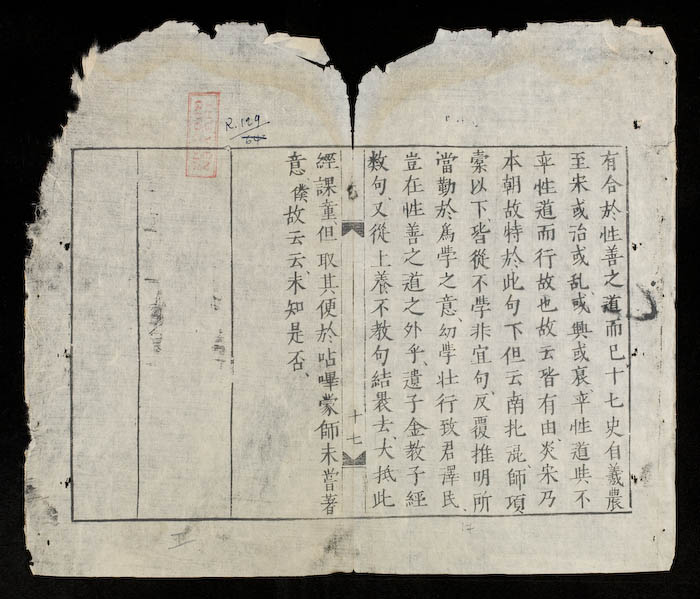 有合於性善之道而已、十七史自羲農
至宋或治或乱、或興或衰、率性道與不
率性道而行故也故云皆有由、炎宋乃
本朝故特於此句下但云南北混、師項
橐以下、皆從不學非宜句、反覆推明所
當勤於爲學之意、幼學壯行致君澤民、
豈在性善之道之外乎、遺子金教子經
数句、又從上養不教句結裊去、大抵此
十七
經課童、但取其便於呫嗶、蒙師未嘗著
意、僕故云云未知是否、
R.129
64
17